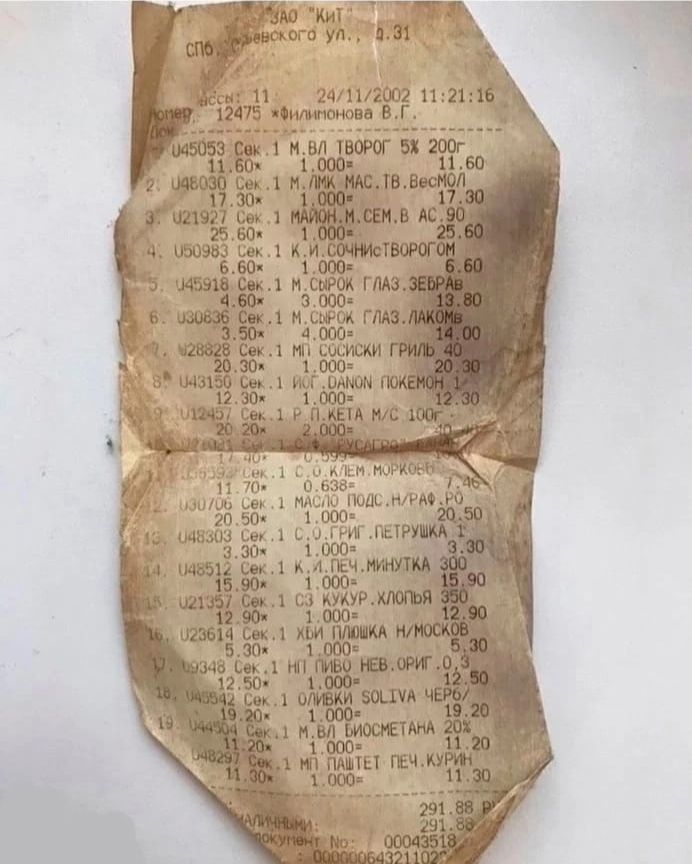 ЗАО "КиТ"
СПб, ул., д.31
ассы: 11 24/11/2002 11:21:16
Номер 12475 *Филимонова В.Г.
Док
U45053 Сек.1 М.ВЛ ТВОРОГ 5% 200г
11.60* 1.000= 11.60
2. U48030 Сек.1 М.ЛМК МАС.ТВ.ВесМОЛ
17.30* 1.000= 17.30
3. U21927 Сек.1 МАЙОН.М.СЕМ.В АС.90
25.60* 1.000= 25.60
4. U50983 Сек.1 К.И.СОЧНИсТВОРОГОМ
6.60* 1.000= 6.60
5. U45918 Сек.1 М.СЫРОК ГЛАЗ.ЗЕБРАв
4.60* 3.000= 13.80
6. U30836 Сек.1 М.СЫРОК ГЛАЗ.ЛАКОМв
3.50* 4.000= 14.00
7. U28828 Сек.1 МП СОСИСКИ ГРИЛЬ 40
20.30* 1.000= 20.30
8. U43150 Сек.1 ЙОГ.DANON ПОКЕМОН 1
12.30* 1.000= 12.30
9. U12457 Сек.1 Р.П.КЕТА М/С 100г
20.20* 2.000= 40.40
Сек.1 С.Ф. "РУСАГРО" БАНАН
17.40* 0.599=
Сек.1 С.О.КЛЕМ.МОРКОВЬ
11.70* 0.638= 7.46
12. U30706 Сек.1 МАСЛО ПОДС.Н/РАФ.РО
20.50* 1.000= 20.50
13. U48303 Сек.1 С.О.ГРИГ.ПЕТРУШКА 1
3.30* 1.000= 3.30
14. U48512 Сек.1 К.И.ПЕЧ.МИНУТКА 300
15.90* 1.000= 15.90
15. U21357 Сек.1 СЗ КУКУР.ХЛОПЬЯ 350
12.90* 1.000= 12.90
16. U23614 Сек.1 ХБИ ПЛЮШКА Н/МОСКОВ
5.30* 1.000= 5.30
17. U9348 Сек.1 НП ПИВО НЕВ.ОРИГ.0,3
12.50* 1.000= 12.50
18. U45542 Сек.1 ОЛИВКИ SOLIVA ЧЕРб/
19.20* 1.000= 19.20
19. U44504 Сек.1 М.ВЛ БИОСМЕТАНА 20%
11.20* 1.000= 11.20
U48297 Сек.1 МП ПАШТЕТ ПЕЧ.КУРИН
11.30* 1.000= 11.30
291.88
НАЛИЧНЫМИ: 291.88
документ No: 00043518